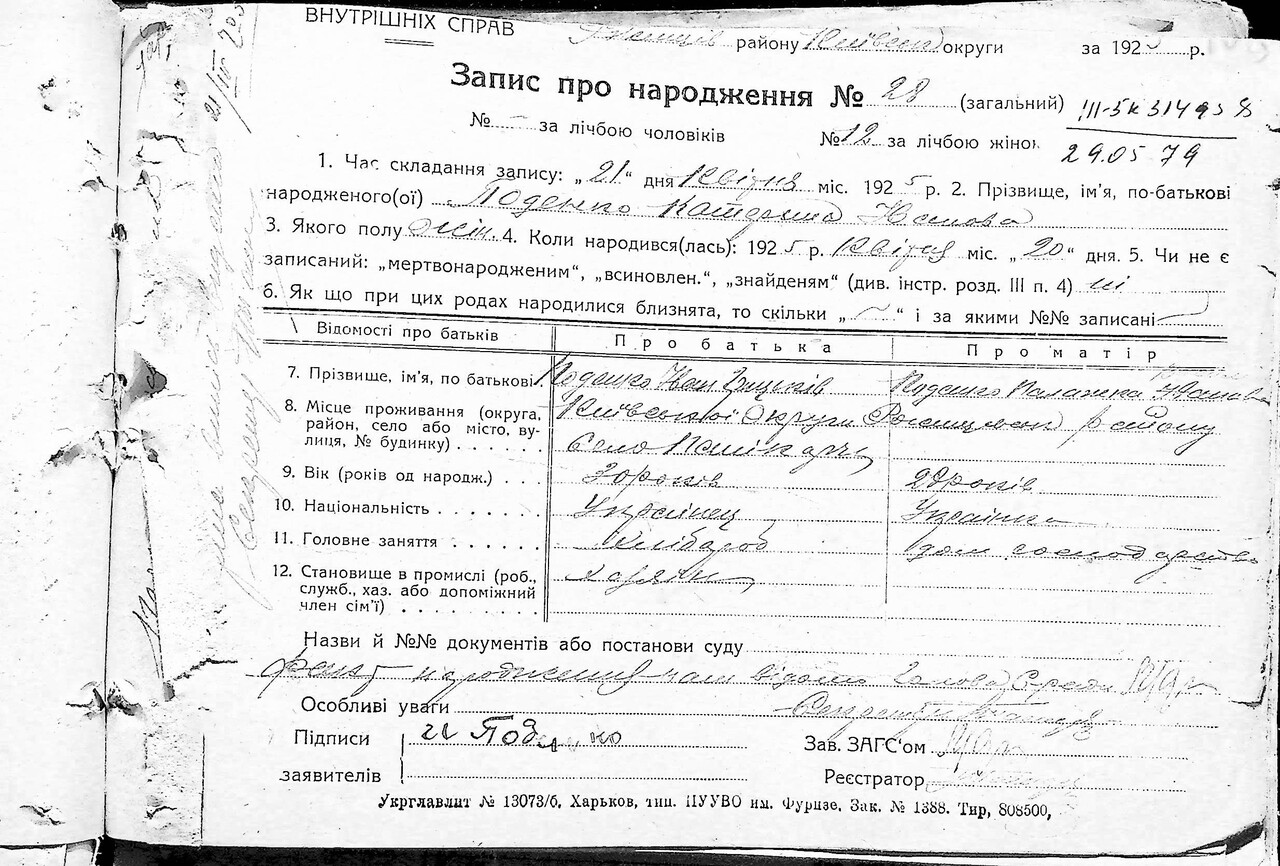 ВНУТРІШНІХ СПРАВ
району Київськ округи за 1925 р.
Запис про народження № 28 (загальний)
III-5К 314958
№ – за лічбою чоловіків №12 за лічбою жінок
29.05 79
1. Час складання запису: „21“ дня Квітня міс. 1925 р. 2. Прізвище, ім'я, по-батькові
народженого(ої) Поденко Катерина Іванова
3. Якого полу жін. 4. Коли народився(лась): 1925 р. Квітня міс. „20“ дня. 5. Чи не є
записаний: „мертвонародженим“, „всиновлен.“, „знайденям“ (див. інстр. розд. III п. 4) ні
6. Як що при цих родах народилися близнята, то скільки „ – “ і за якими №№ записані
Відомості про батьків Про батька Про матір
7. Прізвище, ім'я, по батькові Поденко Іван Поденко Палажка Іванова
8. Місце проживання (округа, Київської Округи району
район, село або місто, ву-
лиця, № будинку) Село
9. Вік (років од народж.) 30 років 28 років
10. Національність Українец Українка
11. Головне заняття хлібароб дом. господарство
12. Становище в промислі (роб., хазяін
служб., хаз. або допоміжний
член сім'ї)
Назви й №№ документів або постанови суду
факт народження нам відомо Голова С/ради
Особливі уваги Секретар
Підписи И Поденко Зав. ЗАГС'ом
заявителів Реєстратор
Укрглавлит № 13073/6, Харьков, тип. ПУУВО им. Фрунзе, Зак. № 1388. Тир, 808500,